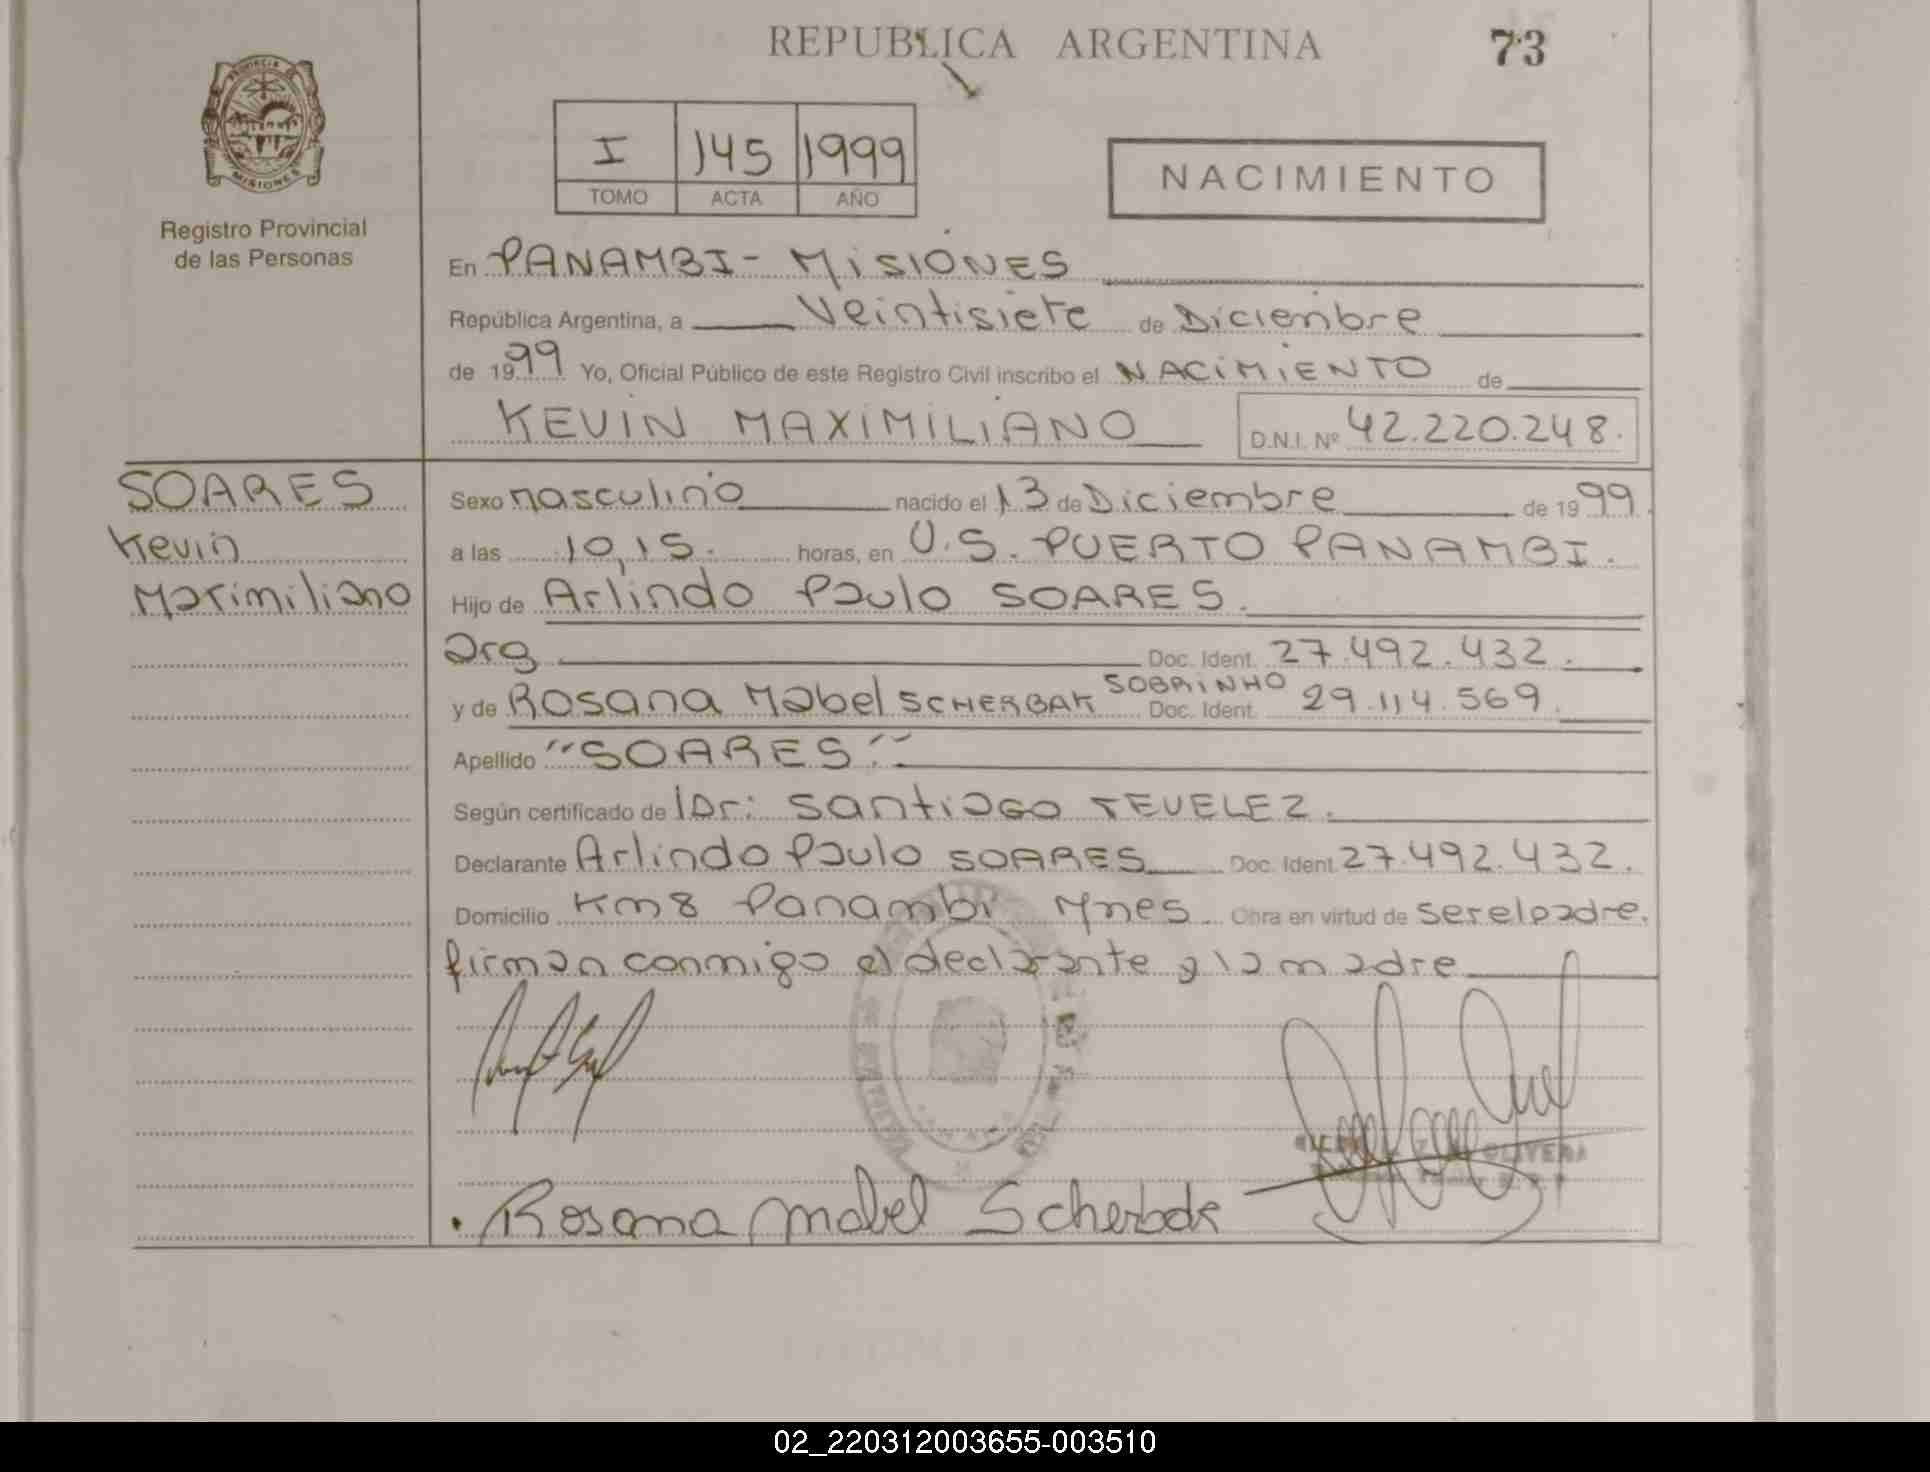 REPUBLICA ARGENTINA
73
PROVINCIA DE
MISIONES
Registro Provincial
de las Personas
I 145 1999
TOMO ACTA AÑO
NACIMIENTO
En PANAMBI - MISIONES
República Argentina, a Veintisiete de Diciembre
de 1999 Yo, Oficial Público de este Registro Civil inscribo el NACIMIENTO de
KEVIN MAXIMILIANO D.N.I. Nº 42.220.248.
SOARES
Kevin
Maximiliano
Sexo masculino nacido el 13 de Diciembre de 1999
a las 10,15. horas, en U.S. PUERTO PANAMBI.
Hijo de Arlindo Paulo SOARES.
arg Doc. Ident. 27.492.432.
y de Rosana Mabel SCHERBAK SOBRINHO Doc. Ident. 29.114.569.
Apellido "SOARES."
Según certificado de Dr: Santiago TEVELEZ.
Declarante Arlindo Paulo SOARES Doc. Ident. 27.492.432.
Domicilio Km 8 Panambi Mnes Obra en virtud de ser el padre.
firman conmigo el declarante y la madre
OLIVERA
Rosana Mabel Scherbak
02_220312003655-003510